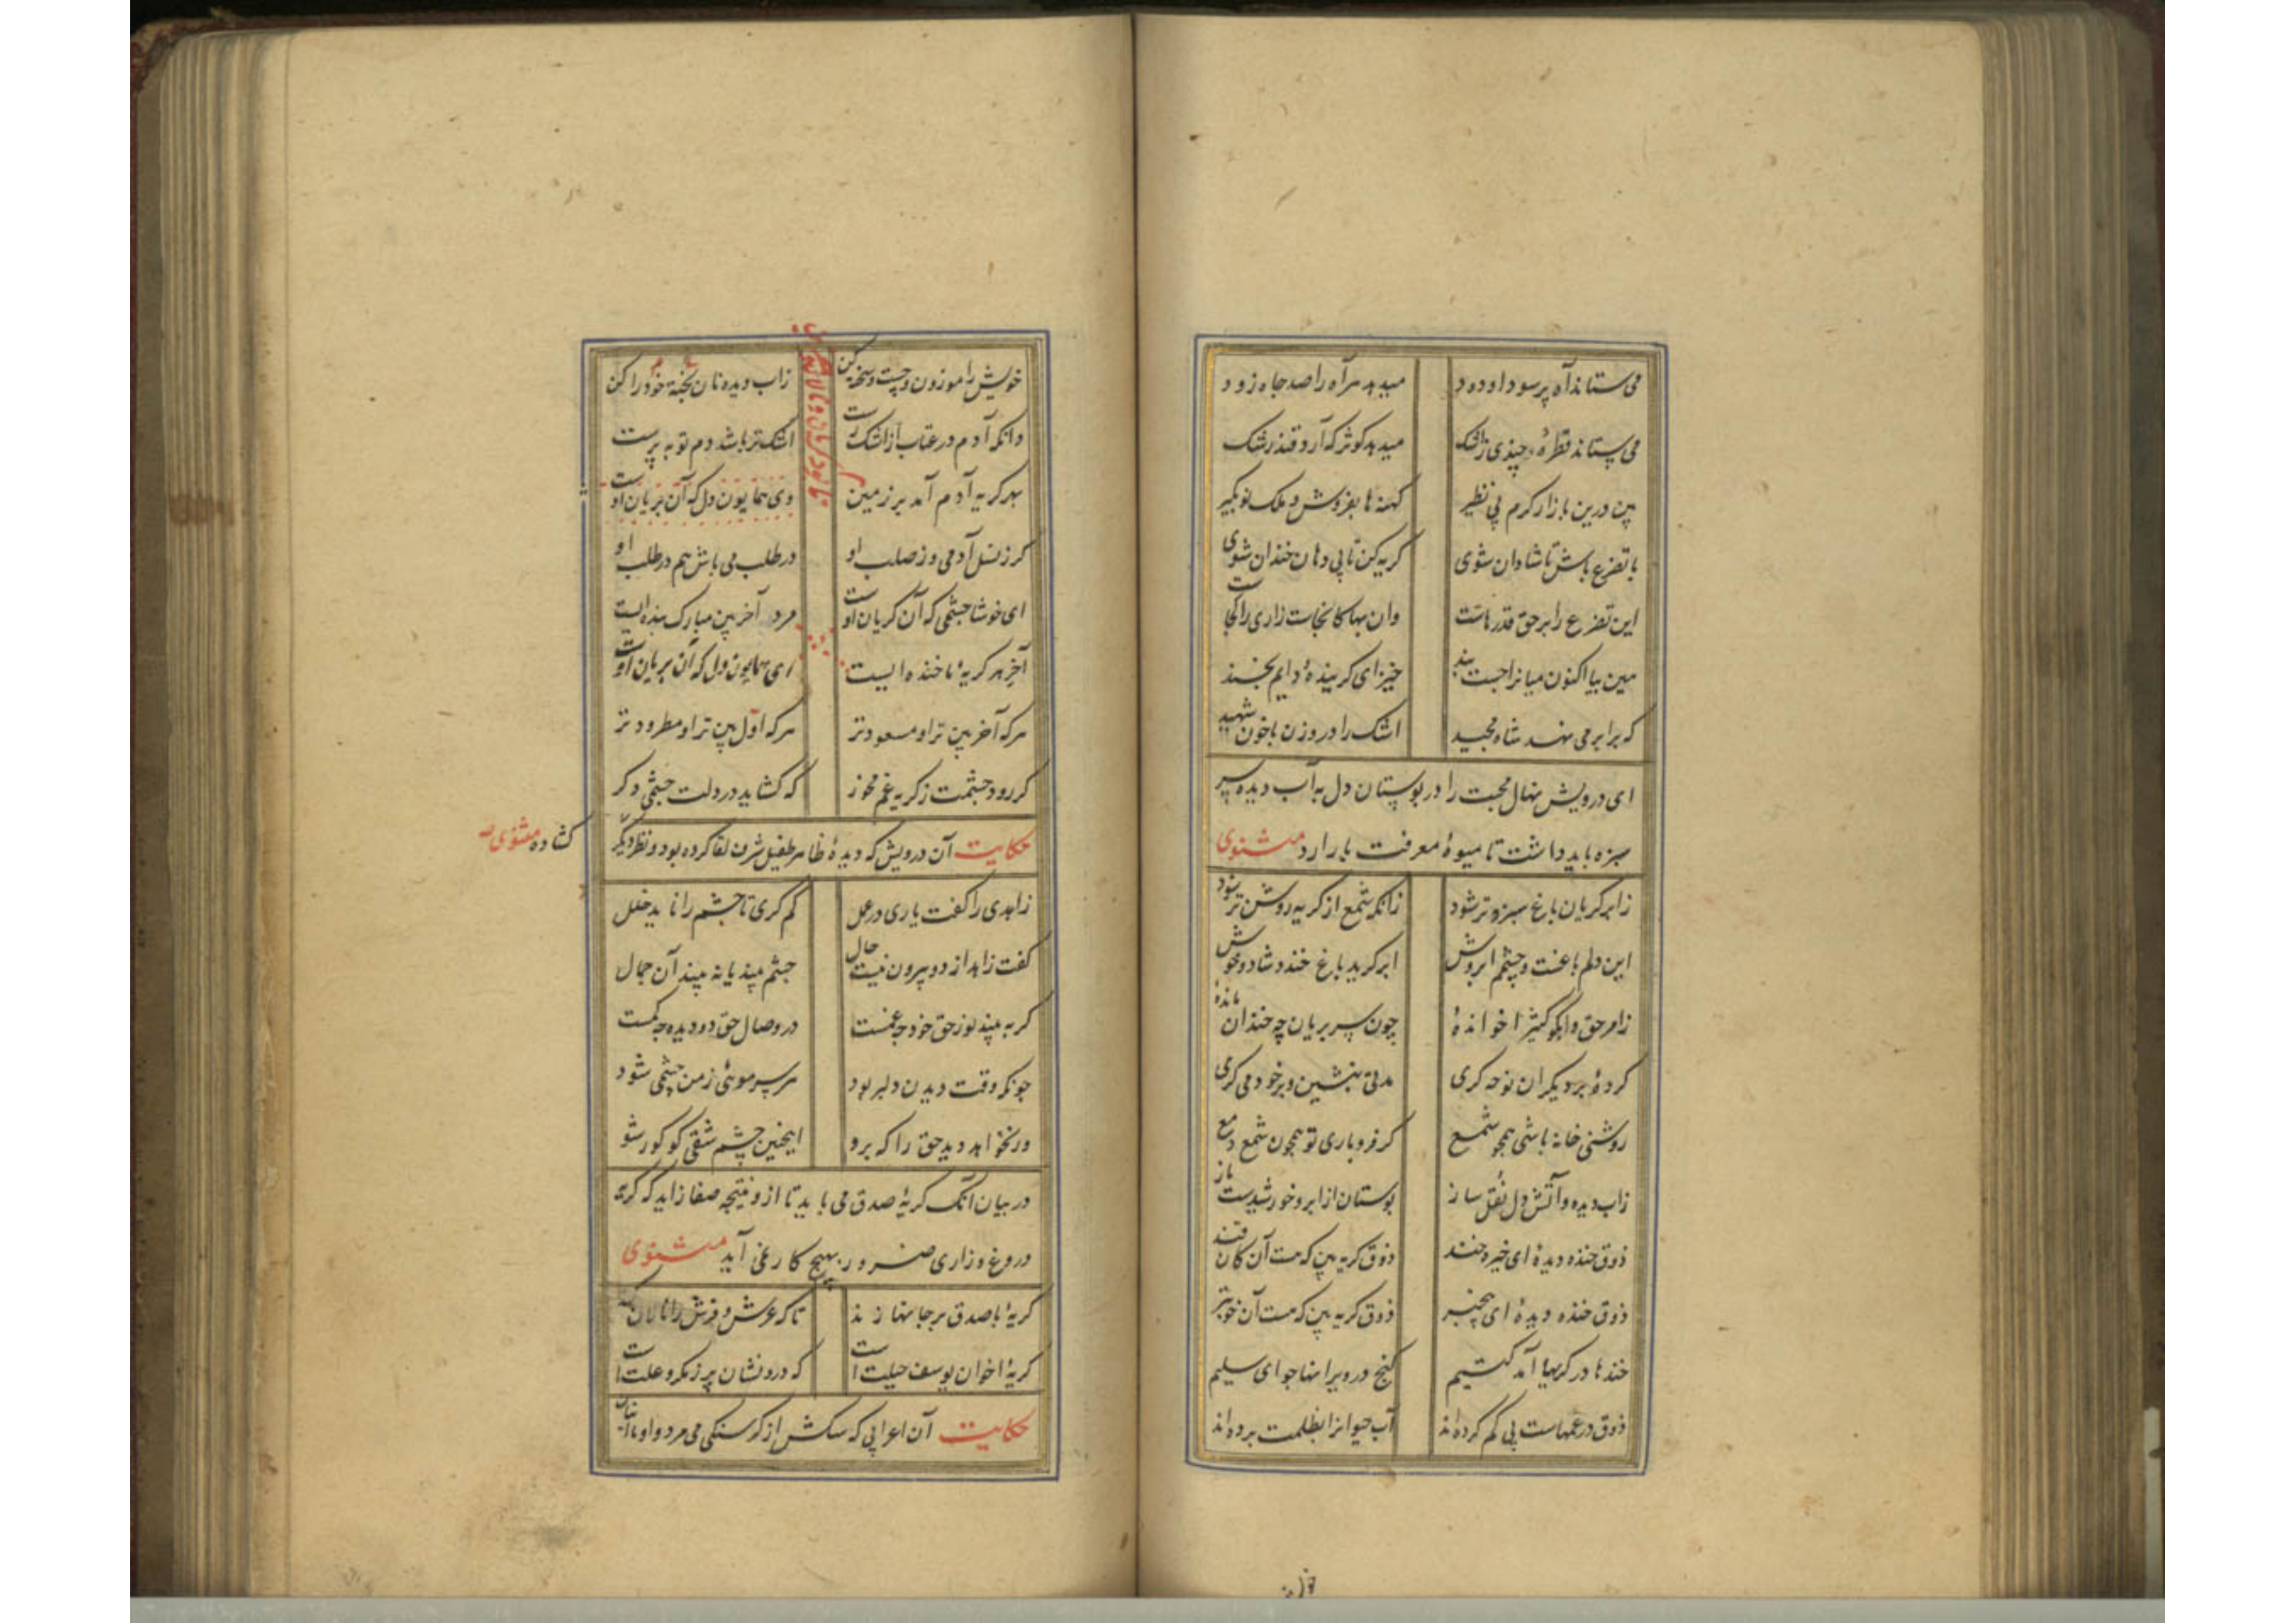 می ستاند آه پر سودا و دود میدهد هر آه را صد جاه زود
می ستاند قطرهٔ چندی ز اشک میدهد کوثر که آرد قند رشک
هین درین بازار کرم بی نظیر کهنه ها بفروش و ملک نو بگیر
با تضرع باش تا شادان شوی کریه کن تا بی دهان خندان شوی
این تضرع را بر حق قدرهاست وان بها کانجاست زاری را کجاست
هین بیا اکنون میانرا چست بند خیز ای کرینده دایم بخند
که برابر می نهد شاه مجید اشک را در وزن با خون شهید
ای درویش نهال محبت را در بوستان دل به آب دیده سر
سبزه باید داشت تا میوهٔ معرفت بار آرد مثنوی
ز ابر کریان باغ سبز و تر شود زانکه شمع از کریه روشن تر شود
این دلم باغست و چشمم ابروش ابر کرید باغ خندد شاد و خوش
ز امر حق وابکوا کثیرا خواندهٔ چون سر بریان چه خندان ماندهٔ
کردهٔ بر دیکران نوحه کری مدتی بنشین و بر خود می کری
روشنی خانه باشی همچو شمع کر فرو باری تو همچون شمع دمع
زاب دیده و آتش دل نقل ساز بوستان از ابر و خورشیدست باز
ذوق خنده دیدهٔ ای خیره خند ذوق کریه بین که هست آن کان قند
ذوق خنده دیدهٔ ای بیخبر ذوق کریه بین که هست آن خوبتر
خندها در کریها آمد کتیم کنج در ویرانها جو ای سلیم
ذوق در غمهاست پی کم کرده اند آب حیوانرا بظلمت برده اند
خویش را موزون و چست و سخته کن زاب دیده نان خود را پخته کن
دانکه آدم در عتاب از اشک رست اشک تر باشد دم توبه پرست
بهر کریه آدم آمد بر زمین وی همایون دل که آن بریان اوست
کر ز نسل آدمی وز صلب او در طلب می باش هم در طلب او
ای خوشا چشمی که آن کریان اوست مرد آخر بین مبارک بنده ایست
آخر هر کریه ما خنده ایست ای همایون دل که آن بریان اوست
هرکه آخر بین تر او مسعودتر هرکه اول بین تر او مطرودتر
کر رود چشمت ز کریه غم مخور که کشاید در دلت چشمی دکر
حکایت آن درویش که دیدهٔ ظاهر طفیل شرف لقا کرده بود و نظر دیگر
کشاده مثنوی
زاهدی را کفت یاری در عمل کم کری تا چشم را ناید خلل
کفت زاهد از دو بیرون نیست حال چشم بیند یا نه بیند آن جمال
کر به بیند نور حق خود چه غمست در وصال حق دو دیده چه کمست
چونکه وقت دیدن دلبر بود هر سر موئی ز من چشمی شود
ور نخواهد دید حق را که برو اینچنین چشم شقی کو کور شو
در بیان آنکه کریهٔ صدق می باید تا ازو نتیجه صفا زاید که کریه
دروغ و زاری بهیچ کار نمی آید مثنوی
کریهٔ با صدق بر جانها زند تا که عرش و فرش را نالان کند
کریهٔ اخوان یوسف حیلت است که درونشان پر ز مکر و علت است
حکایت آن اعرابی که سکش از کرسنکی می مرد و او